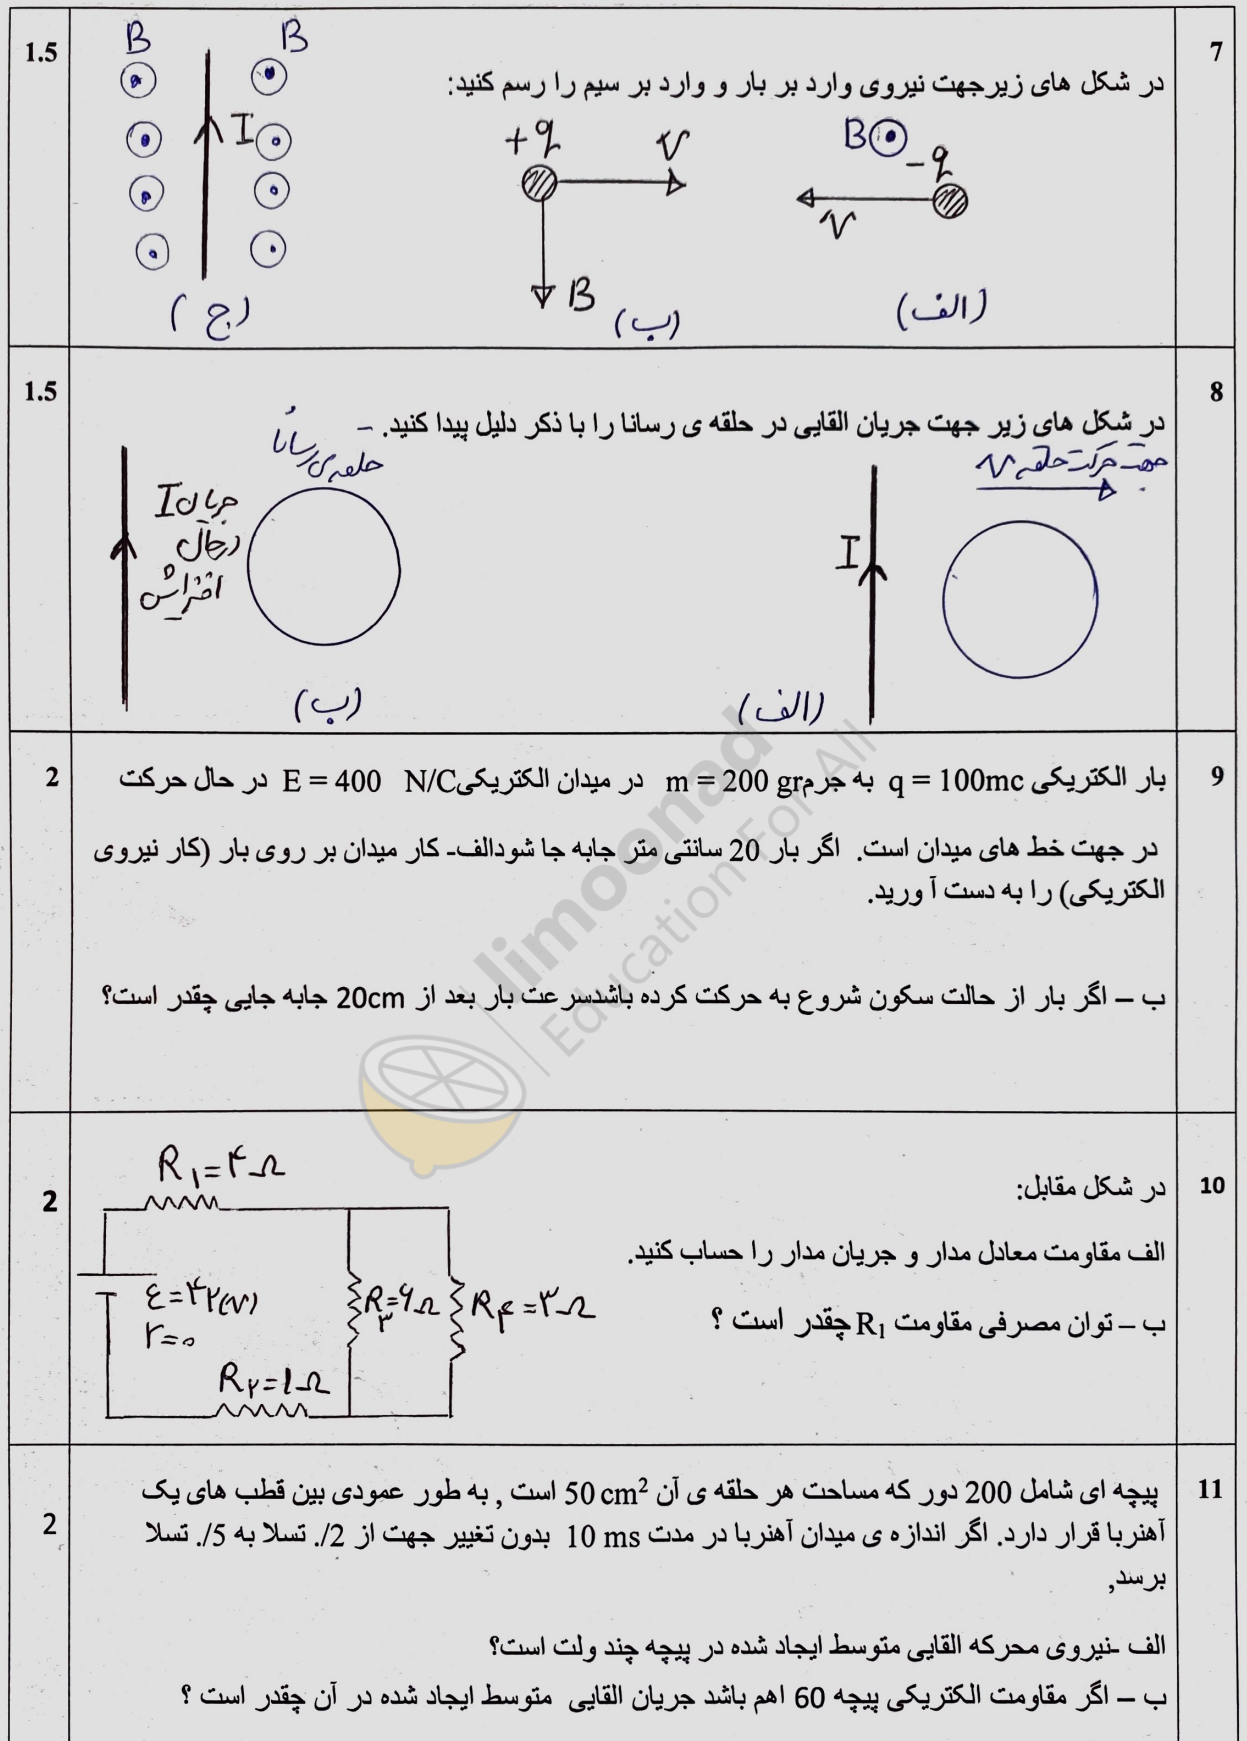 7
1.5
در شکل های زیرجهت نیروی وارد بر بار و وارد بر سیم را رسم کنید:
B⊙ -q
V
(الف)
+q V
B
(ب)
B B
I
(ج)
8
1.5
در شکل های زیر جهت جریان القایی در حلقه ی رسانا را با ذکر دلیل پیدا کنید.
جهت حرکت حلقه V
I
(الف)
حلقه ی رسانا
جریان I
درحال
افزایش
(ب)
9
2
بار الکتریکی q = 100mc به جرم m = 200 gr در میدان الکتریکی E = 400 N/C در حال حرکت
در جهت خط های میدان است. اگر بار 20 سانتی متر جابه جا شودالف- کار میدان بر روی بار (کار نیروی
الکتریکی) را به دست آ ورید.
ب – اگر بار از حالت سکون شروع به حرکت کرده باشدسرعت بار بعد از 20cm جابه جایی چقدر است؟
limoonad
Education For All
10
2
در شکل مقابل:
الف مقاومت معادل مدار و جریان مدار را حساب کنید.
ب – توان مصرفی مقاومت R₁ چقدر است ؟
R۱=۴Ω
ε=۴۲(V)
r=۰
R۳=۶Ω
R۴=۳Ω
R۲=۱Ω
11
2
پیچه ای شامل 200 دور که مساحت هر حلقه ی آن 50 cm² است , به طور عمودی بین قطب های یک
آهنربا قرار دارد. اگر اندازه ی میدان آهنربا در مدت 10 ms بدون تغییر جهت از 2/. تسلا به 5/. تسلا
برسد,
الف -نیروی محرکه القایی متوسط ایجاد شده در پیچه چند ولت است؟
ب – اگر مقاومت الکتریکی پیچه 60 اهم باشد جریان القایی متوسط ایجاد شده در آن چقدر است ؟